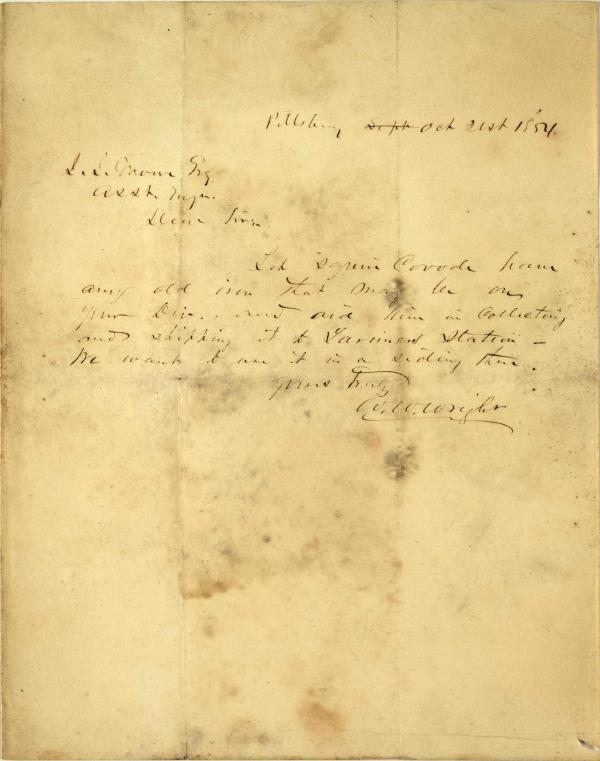 Pittsburg Sept Oct 21st 1854
L. L. Moore Esq.
Asst. Engr.
Dear Sir
Let Squire Covode have
any old iron that may be on
your Div., and aid him in Collecting
and shipping it to Larimers Station –
We want to use it in a siding there.
yours truly
W. W. Wright